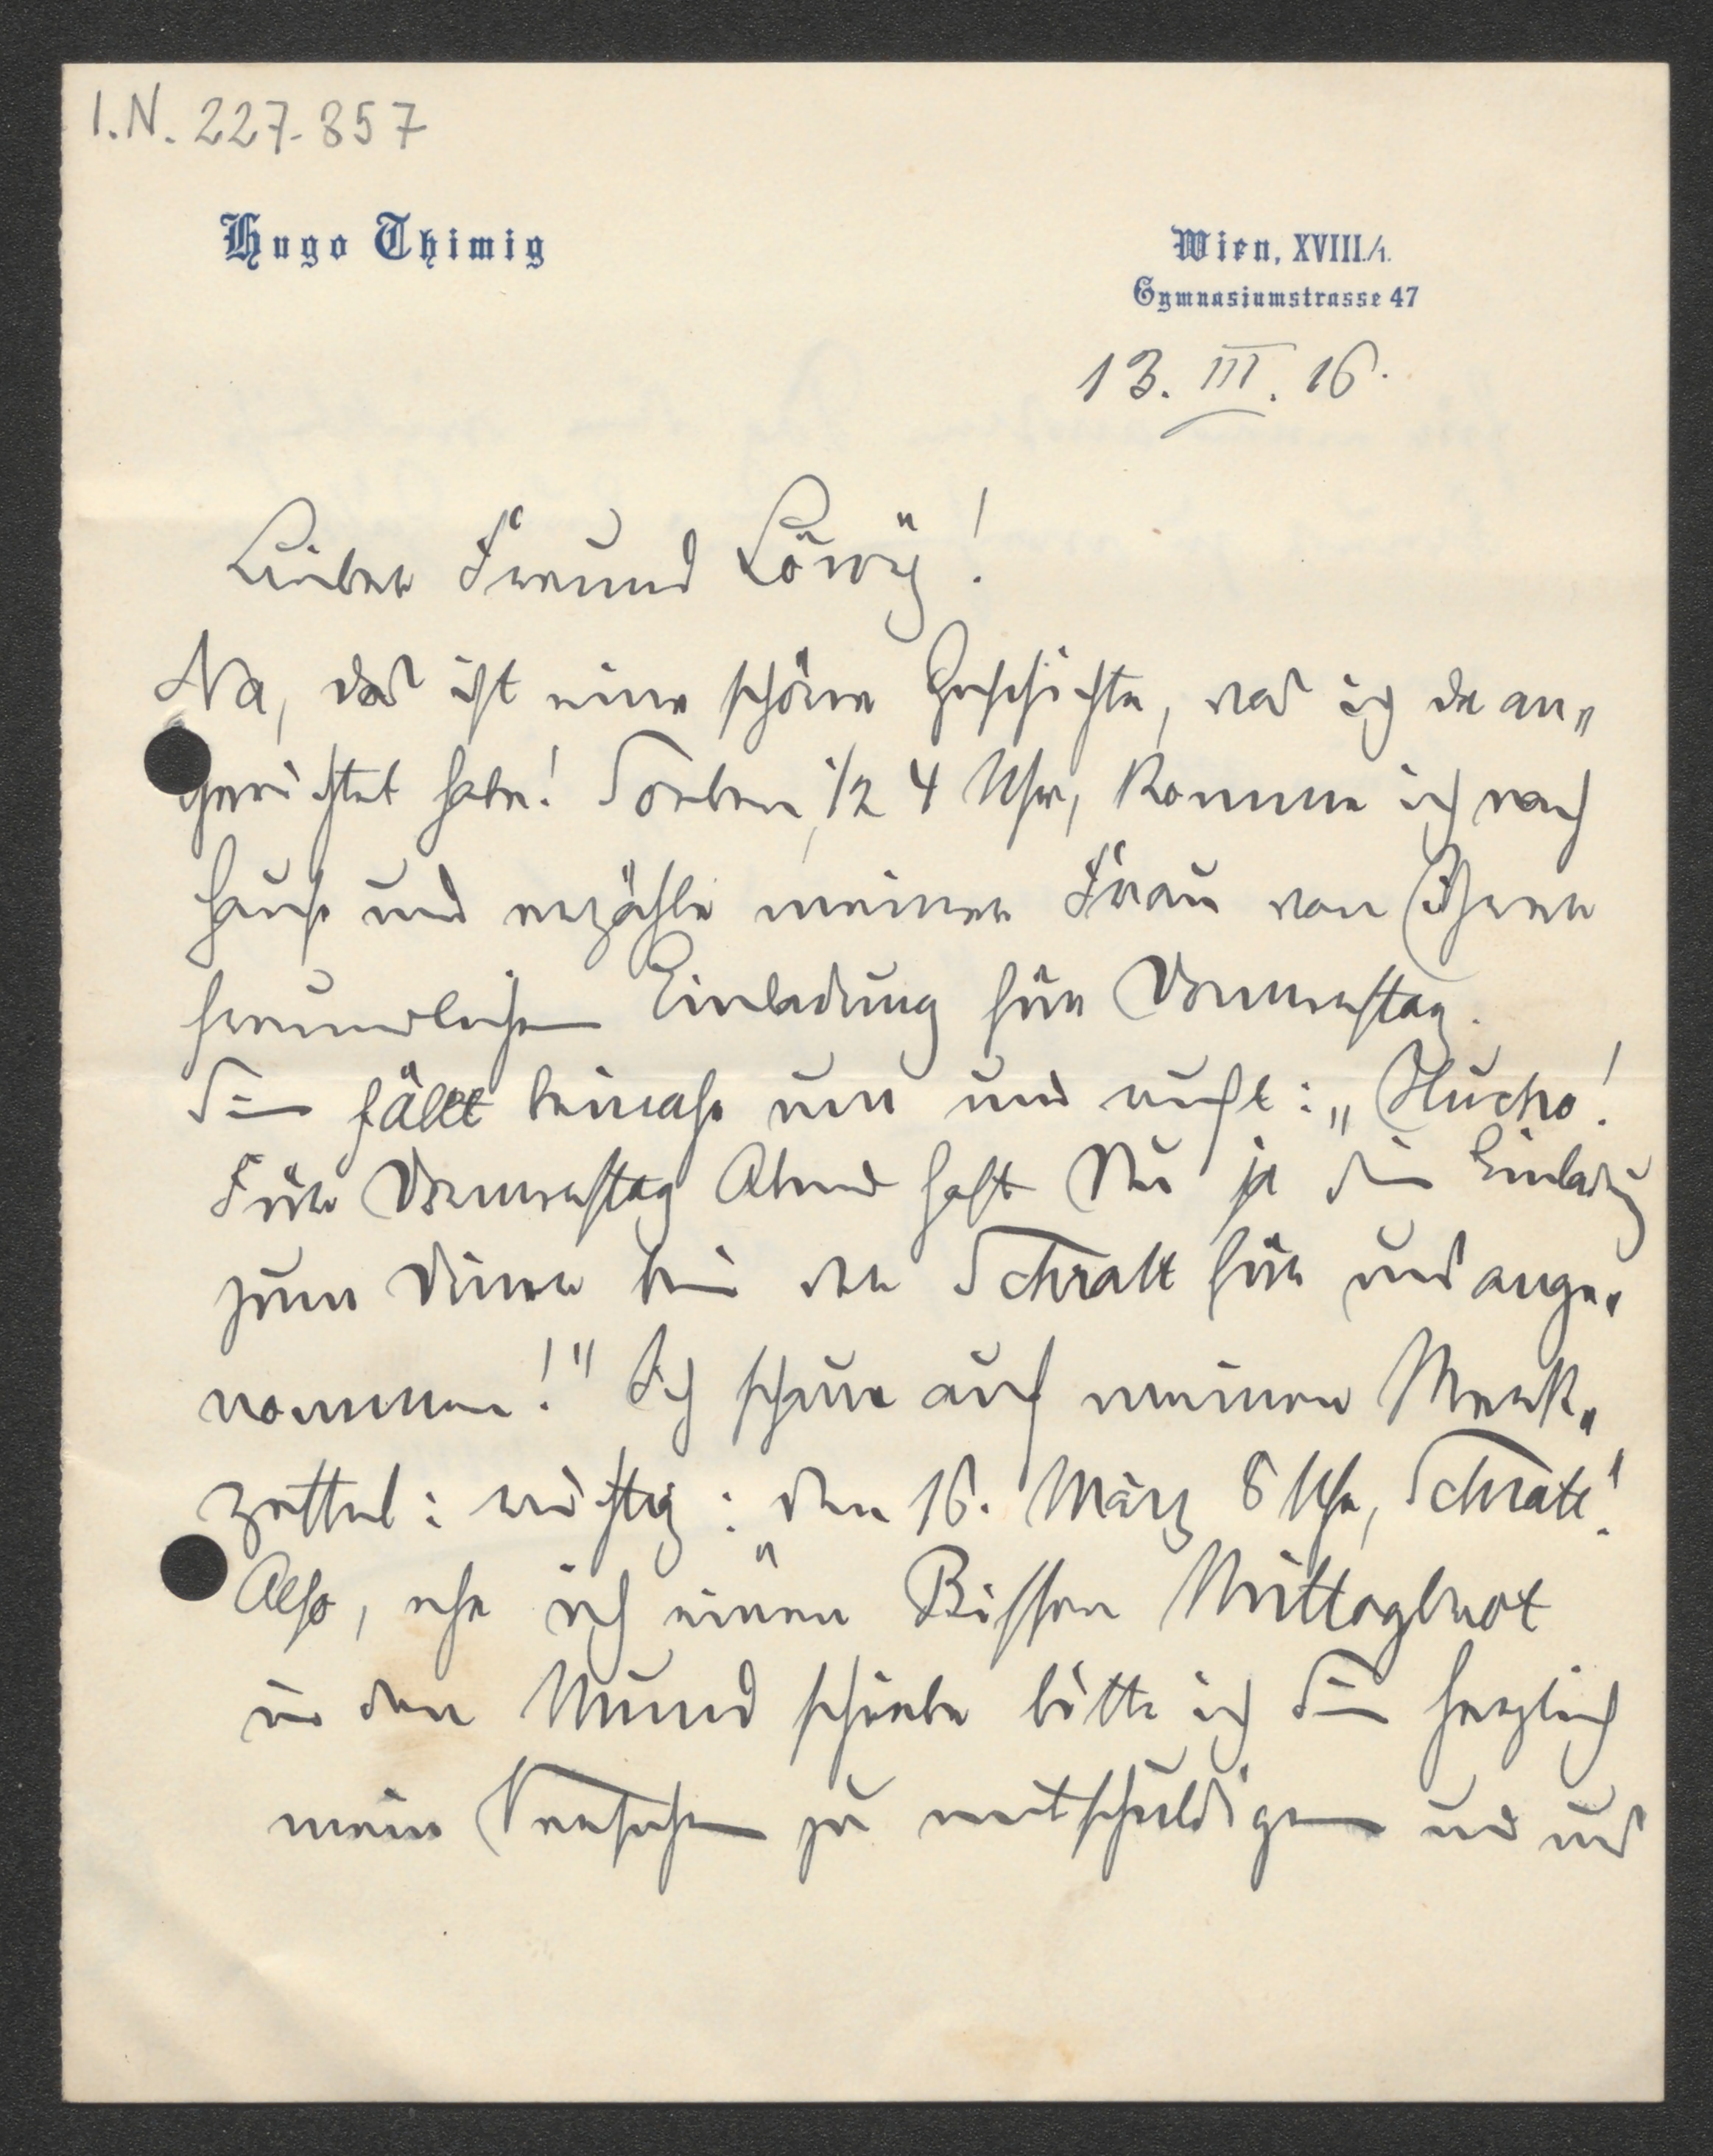 I.N. 227.857
Hugo Thimig
Wien, XVIII./1.
Gymnasiumstrasse 47
13. III. 16.
Lieber Freund Löwÿ!
Na, das ist eine schöne Geschichte, was ich da an„
gerichtet habe! Soeben, 1/2 4 Uhr, komme ich nach
Hause und erzähle meiner Frau von Ihrer
freundlichen Einladung für Donnerstag.
Sie fällt beinahe um und ruft: „Hucho!
Für Donnerstag Abend hast Du ja die Einladung
zum Diner bei der Schratt für uns ange„
nommen!" Ich schaue auf meinen Merk„
zettel: richtig: den 16. März 8 Uhr, Schratt!
Also, ehe ich einen Bissen Mittagbrot
in den Mund schiebe bitte ich Sie herzlich
mein Versehen zu entschuldigen und uns